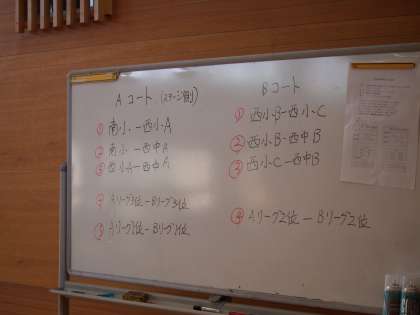 Aコート (ステージ側)
① 南小 － 西小A
② 南小 － 西中A
③ 西小A － 西中A
④ Aリーグ3位 － Bリーグ3位
⑤ Aリーグ1位 － Bリーグ1位
Bコート
① 西小B － 西小C
② 西小B － 西中B
③ 西小C － 西中B
④ Aリーグ2位 － Bリーグ2位